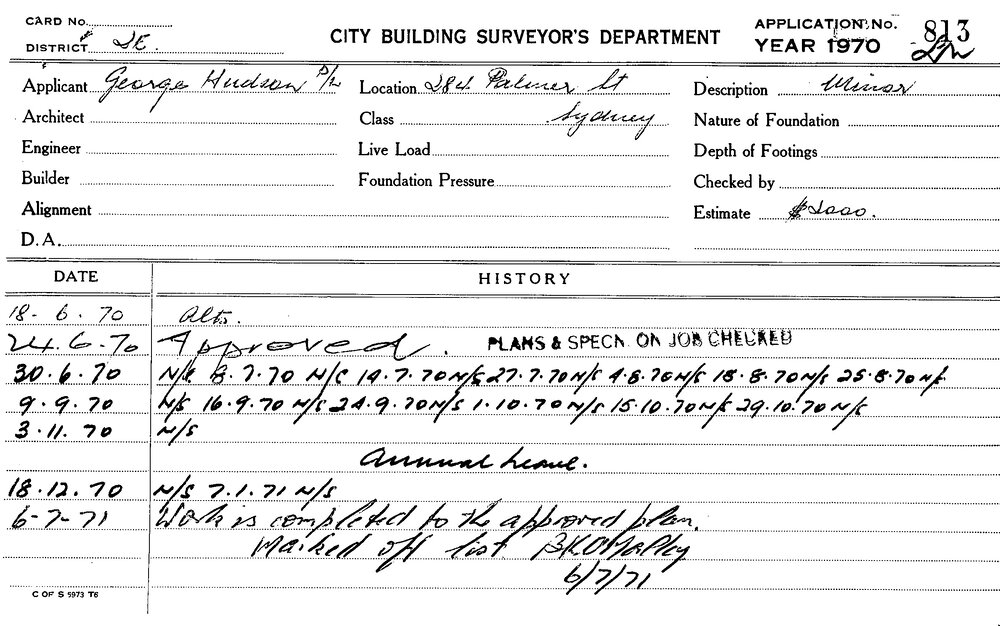 CARD No.
DISTRICT S.E.
CITY BUILDING SURVEYOR'S DEPARTMENT
APPLICATION No. 813
YEAR 1970
Applicant George Hudson P/L Location 284 Palmer St Description Minor
Architect Class Sydney Nature of Foundation
Engineer Live Load Depth of Footings
Builder Foundation Pressure Checked by
Alignment Estimate $2000.
D.A.
DATE HISTORY
18-6.70 Alts.
24.6.70 Approved. PLANS & SPECN. ON JOB CHECKED
30.6.70 N/S 8.7.70 N/S 14.7.70 N/S 27.7.70 N/S 4.8.70 N/S 18.8.70 N/S 25.8.70 N/S
9.9.70 N/S 16.9.70 N/S 24.9.70 N/S 1.10.70 N/S 15.10.70 N/S 29.10.70 N/S
3.11.70 N/S
Annual Leave.
18.12.70 N/S 7.1.71 N/S
6-7-71 Work is completed to the approved plan.
Marked off list
6/7/71
C OF S 5973 T6